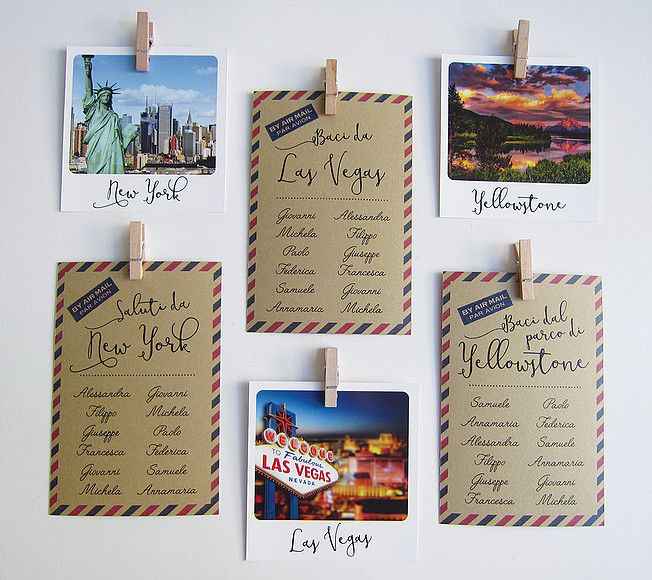 New York
BY AIR MAIL
PAR AVION
Baci da
Las Vegas
Giovanni Alessandra
Michela Filippo
Paolo Giuseppe
Federica Francesca
Samuele Giovanni
Annamaria Michela
Yellowstone
BY AIR MAIL
PAR AVION
Saluti da
New York
Alessandra Giovanni
Filippo Michela
Giuseppe Paolo
Francesca Federica
Giovanni Samuele
Michela Annamaria
WELCOME
TO Fabulous
LAS VEGAS
NEVADA
Las Vegas
BY AIR MAIL
PAR AVION
Baci dal
parco di
Yellowstone
Samuele Paolo
Annamaria Federica
Alessandra Samuele
Filippo Annamaria
Giuseppe Giovanni
Francesca Michela